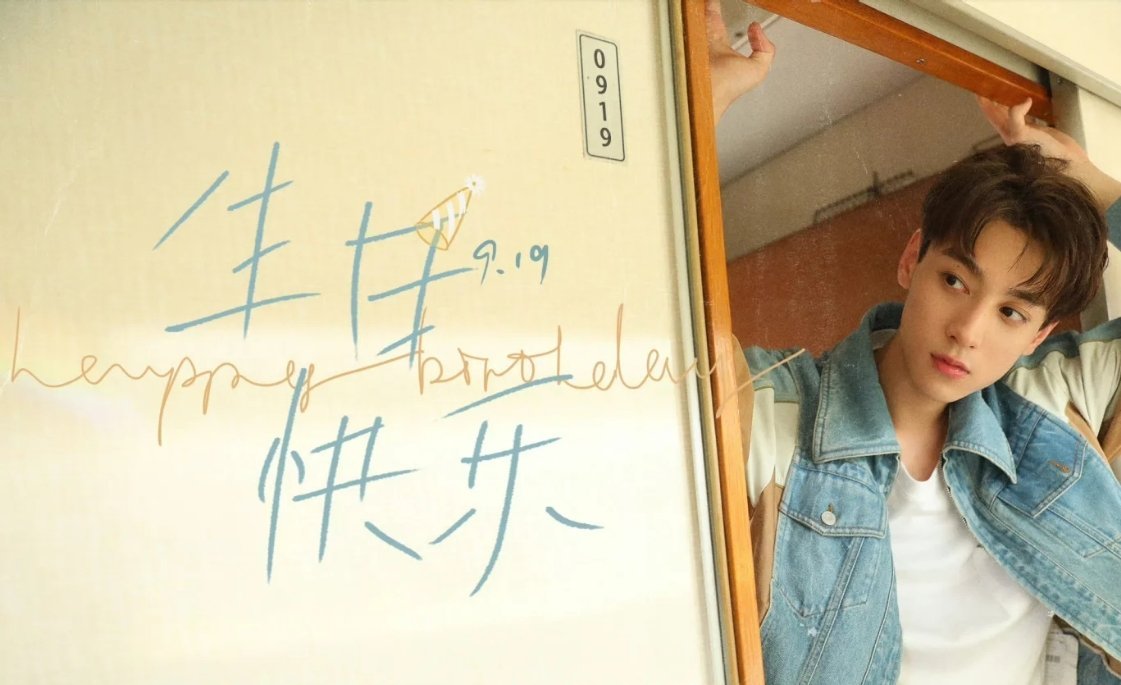 0919
生日
9.19
happy birthday
快乐